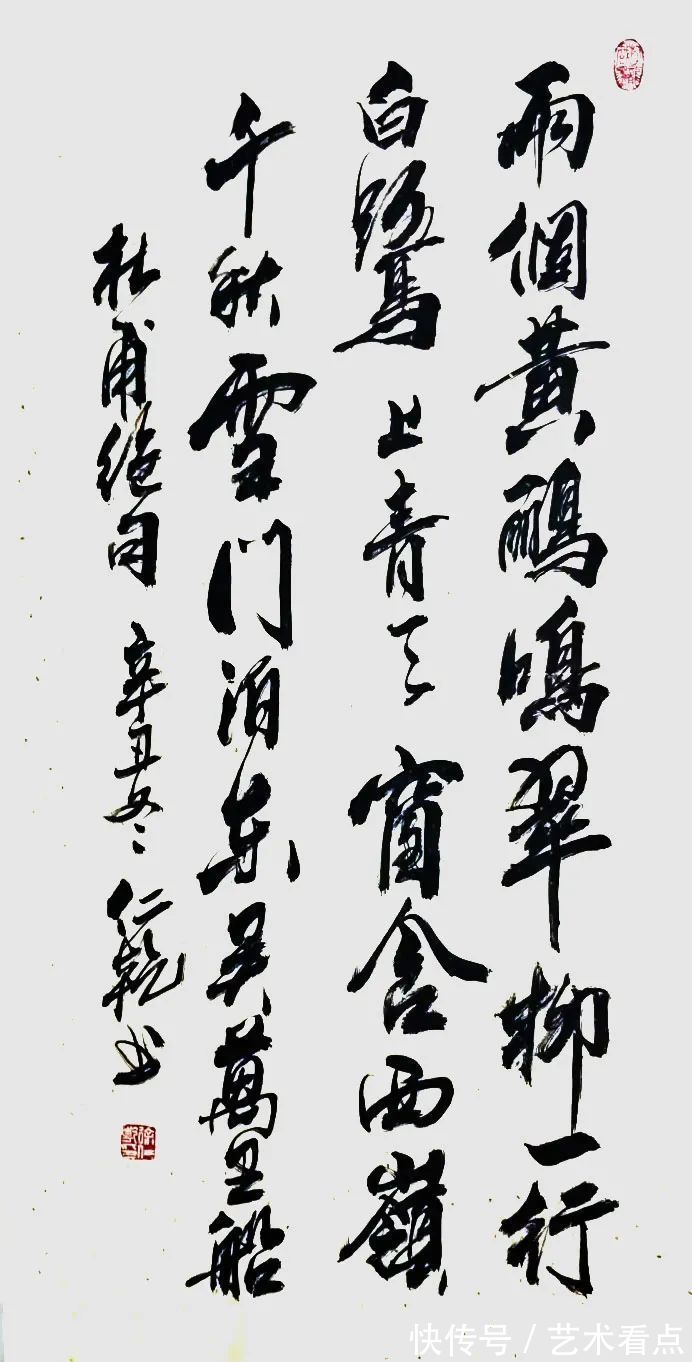 兩個黃鸝鳴翠柳一行
白鷺上青天窗含西嶺
千秋雪門泊東吳萬里船
杜甫絕句 辛丑冬 仁乾书
快传号 / 艺术看点